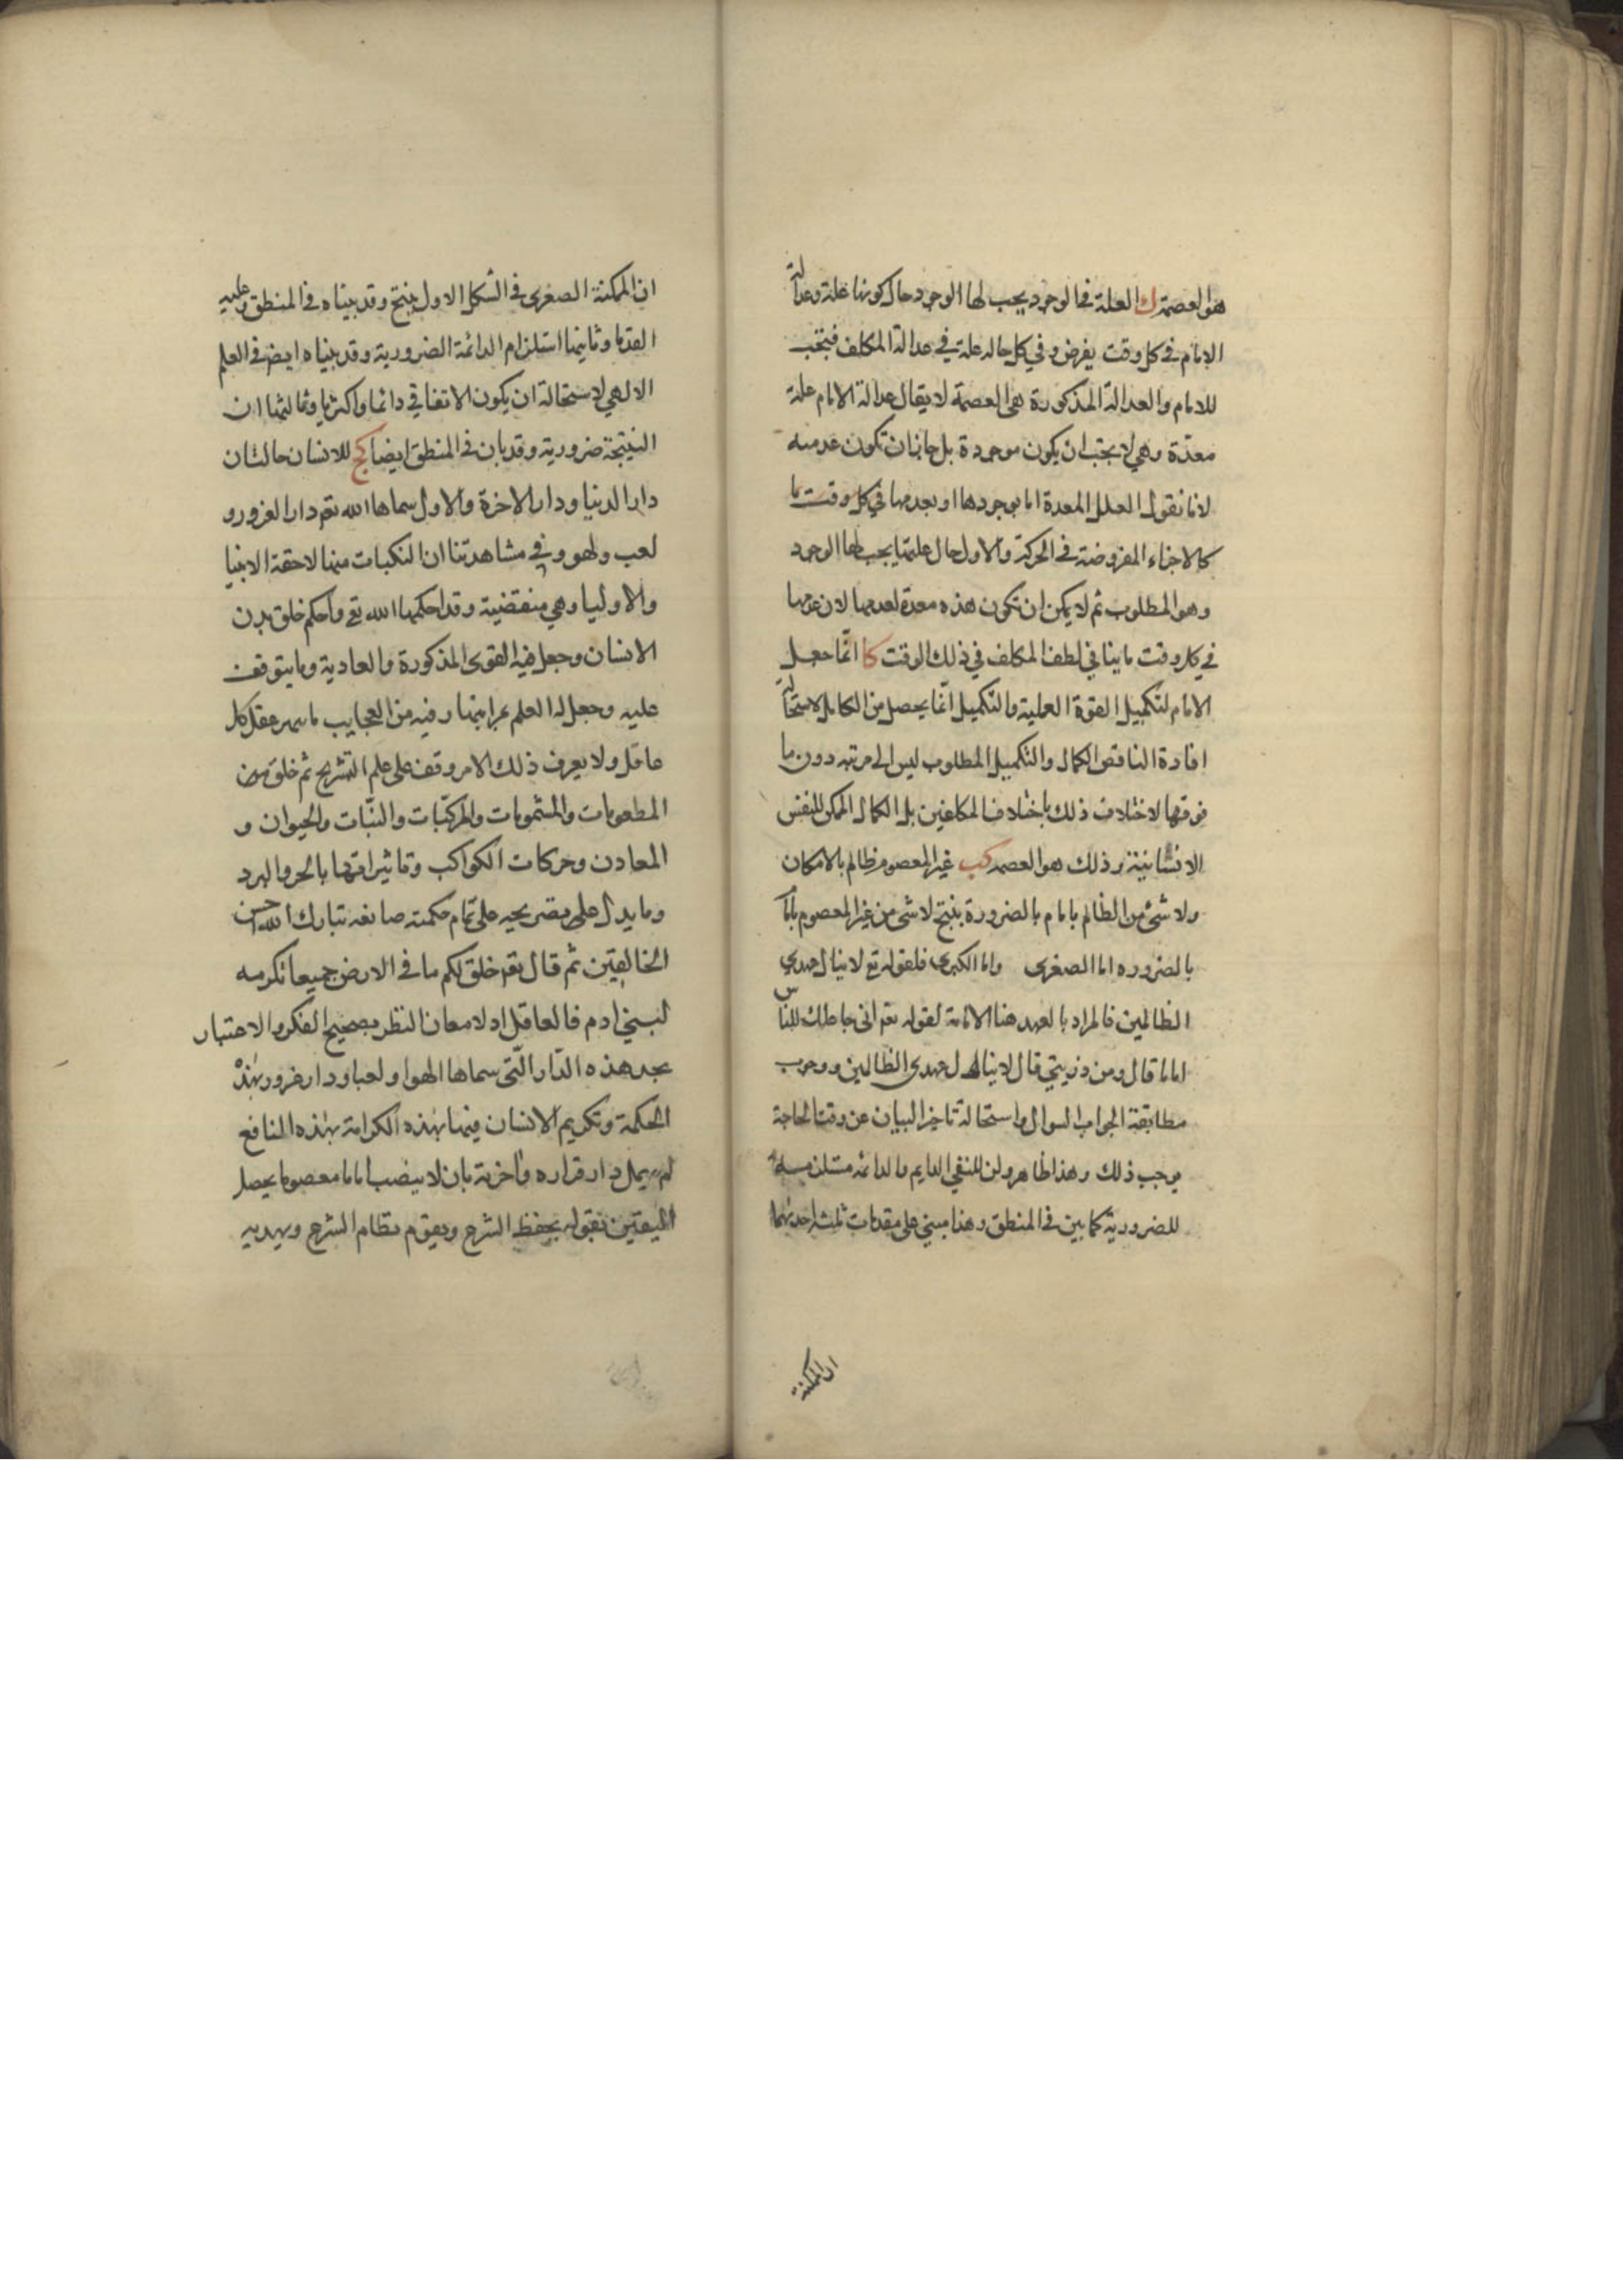 هو العصمة ك العلة في الوجود يجب لها الوجود حال كونها علة وعدالة
الامام في كل وقت يفرض وفي كل حال علة في عدالة المكلف فيجب
للامام والعدالة المذكورة هي العصمة لا يقال عدالة الامام علة
معدّة وهي لا يجب ان يكون موجودة بل جاز ان تكون عدمية
لانا نقول العلل المعدة اما بوجودها او بعدمها في كل وقت ما
كالاجزاء المفروضة في الحركة والاول حال عليتها يجب لها الوجود
وهو المطلوب ثم لا يمكن ان تكون هذه معدة لعدمها لان عدمها
في كل وقت ما ينافي لطف المكلف في ذلك الوقت كا انّما جعل
الامام لتكميل القوة العملية والتكميل انّما يحصل من الكامل لاستحالة
افادة الناقص الكمال والتكميل المطلوب ليس الى مرتبه دون ما
فوقها لاختلاف ذلك باختلاف المكلفين بل الكمال الممكن للنفس
الانسانية وذلك هو العصمه كب غير المعصوم ظالم بالامكان
ولا شئ من الظالم بامام بالضرورة ينتج لا شئ من غير المعصوم بامام
بالضروره اما الصغرى واما الكبرى فلقوله تع لا ينال عهدي
الظالمين فالمراد بالعهد هنا الامامة لقوله تع اني جاعلك للناس
اماما قال ومن ذريتي قال لا ينال عهدى الظالمين ووجوب
مطابقة الجواب السوال واستحالة تاخير البيان عن وقت الحاجة
يوجب ذلك وهذا ظاهر ولن للنفي الدايم والدائمه مستلزمة
للضرورية كما بين في المنطق وهذا مبني على مقدمات ثلث احديهما
ان الممكنة
ان الممكنة الصغرى في الشكل الاول ينتج وقد بيناه في المنطق وعليه
القدما وثانيها استلزام الدائمة الضرورية وقد بيناه ايض في العلم
الالهي لاستحالة ان يكون الاتفاقي دائما واكثريا وثالثها ان
النتيجة ضرورية وقد بان في المنطق ايضا كج للانسان حالتان
دار الدنيا ودار الاخرة والاول سماها الله تع دار الغرور و
لعب ولهو وفي مشاهدتنا ان النكبات منها لاحقة الانبيا
والاوليا وهي منقضية وقد احكمها الله تع واحكم خلق بدن
الانسان وجعل فيه القوى المذكورة والعادية وما يتوقف
عليه وجعل له العلم بمراتبها وفيه من العجايب ما يبهر عقل كل
عاقل ولا يعرف ذلك الا من وقف على علم التشريح ثم خلق من
المطعومات والمشمومات والمركّبات والنبّات والحيوان و
المعادن وحركات الكواكب وتاثيراتها بالحر والبرد
وما يدل على بصريحه على تمام حكمته صانعه تبارك الله احسن
الخالقين ثم قال تع خلق لكم ما في الارض جميعا تكرمه
لبني ادم فالعاقل اولا معان النظر بصحيح الفكر والاعتبار
يجد هذه الدّار التّي سماها لهوا ولعبا ودار غرور بهذه
الحكمة وتكريم الانسان فيها بهذه الكرامة بهذه المنافع
لم يهمل دار قراره واخرته بان لا ينصب اماما معصوما يحصل
اليقين بقوله يحفظ الشرع ويقوم نظام الشرع ويهديه